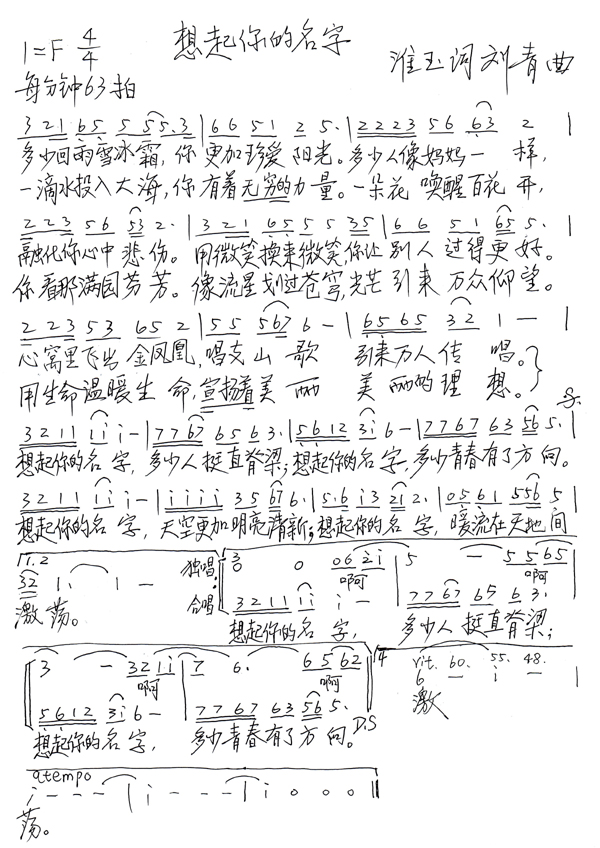 想起你的名字
1=F 4/4
淮玉词 刘青曲
每分钟63拍
3 2 1 6 5 5 5 5. 3 | 6 6 5 1 2 5. | 2 2 2 3 5 6 6 3 2 |
多少回雨雪冰霜,你 更加珍爱 阳光。多少人像妈妈一 样,
一滴水投入大海,你 有着无穷的力量。一朵花 唤醒百花 开,
2 2 3 5 6 5 3 2. | 3 2 1 6 5 5 5 3 5 | 6 6 5 1 6 5 5. |
融化你心中 悲伤。 用微笑换来微笑,你让 别人 过得更好。
你看那满园芬芳。像流星划过苍穹,光芒 引来 万众仰望。
2 2 3 5 3 6 5 2 | 5 5 5 6 7 6 - | 6 5 6 5 3 2 1 - |
心窝里飞出 金凤凰,唱支山 歌 引来万人传 唱。
用生命温暖生 命,宣扬着美 丽 美 丽的理 想。
3 2 1 1 1 1 i - | 7 7 6 7 6 5 6 3. | 5 6 1 2 3 i 6 - | 7 7 6 7 6 3 5 6 5. |
想起你的名 字, 多少人 挺直脊梁;想起你的名 字,多少青春有了方 向。
3 2 1 1 i i i - | i i i i 3 5 6 7 6. | 5. 6 i 3 2 i 2. | 0 5 6 1 5 5 6 5 |
想起你的名 字, 天空更加明亮清新;想起你的名 字, 暖流在天地间
1. 2 独唱: 3
3 2 1. 1 - 0 0 0 6 2 i | 5 - 5 5 6 5 |
啊 啊
合唱 3 2 1 1 i i i - 7 7 6 7 6 5 6 3.
激荡。 想起你的名 字, 多少人 挺直脊梁;
3 - 3 2 1 i | 7 6. 6 5 6 2 | 4 rit. 60. 55. 48.
啊 啊 6 - i - |
5 6 1 2 3 i 6 - 7 7 6 7 6 3 5 6 5. D.S 激
想起你的名 字, 多少青春有了方 向。
a tempo
i - - - | i - - - | i 0 0 0 ||
荡。